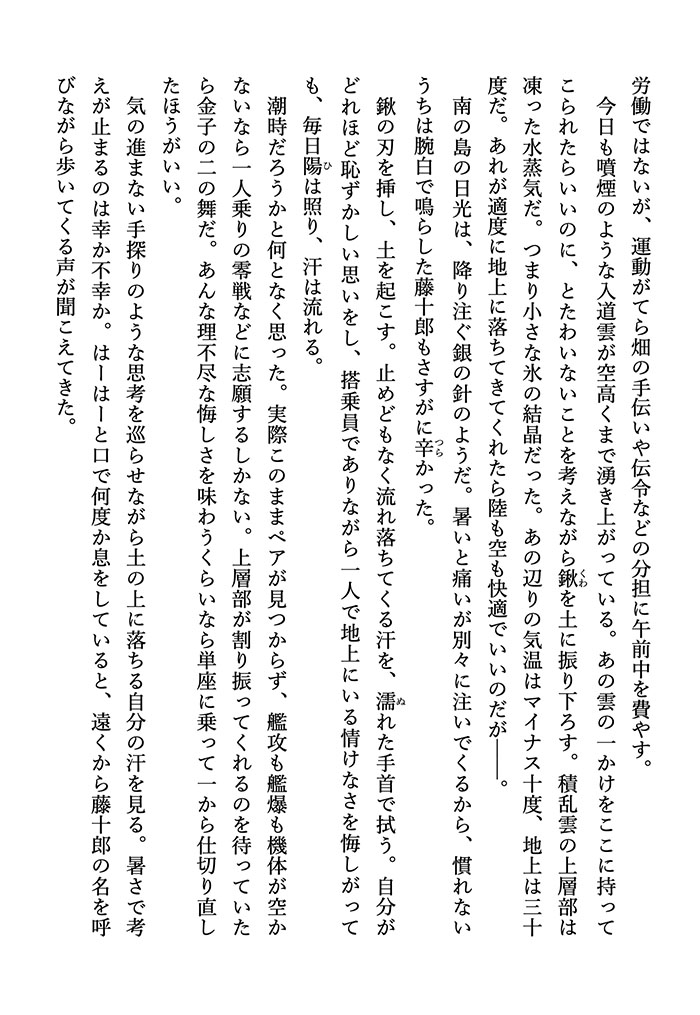 労働ではないが、運動がてら畑の手伝いや伝令などの分担に午前中を費やす。
　今日も噴煙のような入道雲が空高くまで湧き上がっている。あの雲の一かけをここに持って
こられたらいいのに、とたわいないことを考えながら鍬くわを土に振り下ろす。積乱雲の上層部は
凍った水蒸気だ。つまり小さな氷の結晶だった。あの辺りの気温はマイナス十度、地上は三十
度だ。あれが適度に地上に落ちてきてくれたら陸も空も快適でいいのだが――。
　南の島の日光は、降り注ぐ銀の針のようだ。暑いと痛いが別々に注いでくるから、慣れない
うちは腕白で鳴らした藤十郎もさすがに辛つらかった。
　鍬の刃を挿し、土を起こす。止めどもなく流れ落ちてくる汗を、濡ぬれた手首で拭う。自分が
どれほど恥ずかしい思いをし、搭乗員でありながら一人で地上にいる情けなさを悔しがって
も、毎日陽ひは照り、汗は流れる。
　潮時だろうかと何となく思った。実際このままペアが見つからず、艦攻も艦爆も機体が空か
ないなら一人乗りの零戦などに志願するしかない。上層部が割り振ってくれるのを待っていた
ら金子の二の舞だ。あんな理不尽な悔しさを味わうくらいなら単座に乗って一から仕切り直し
たほうがいい。
　気の進まない手探りのような思考を巡らせながら土の上に落ちる自分の汗を見る。暑さで考
えが止まるのは幸か不幸か。はーはーと口で何度か息をしていると、遠くから藤十郎の名を呼
びながら歩いてくる声が聞こえてきた。